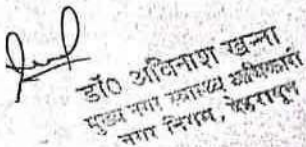 डॉ० अविनाश खन्ना
मुख्य नगर स्वास्थ्य अधिकारी
नगर निगम, देहरादून